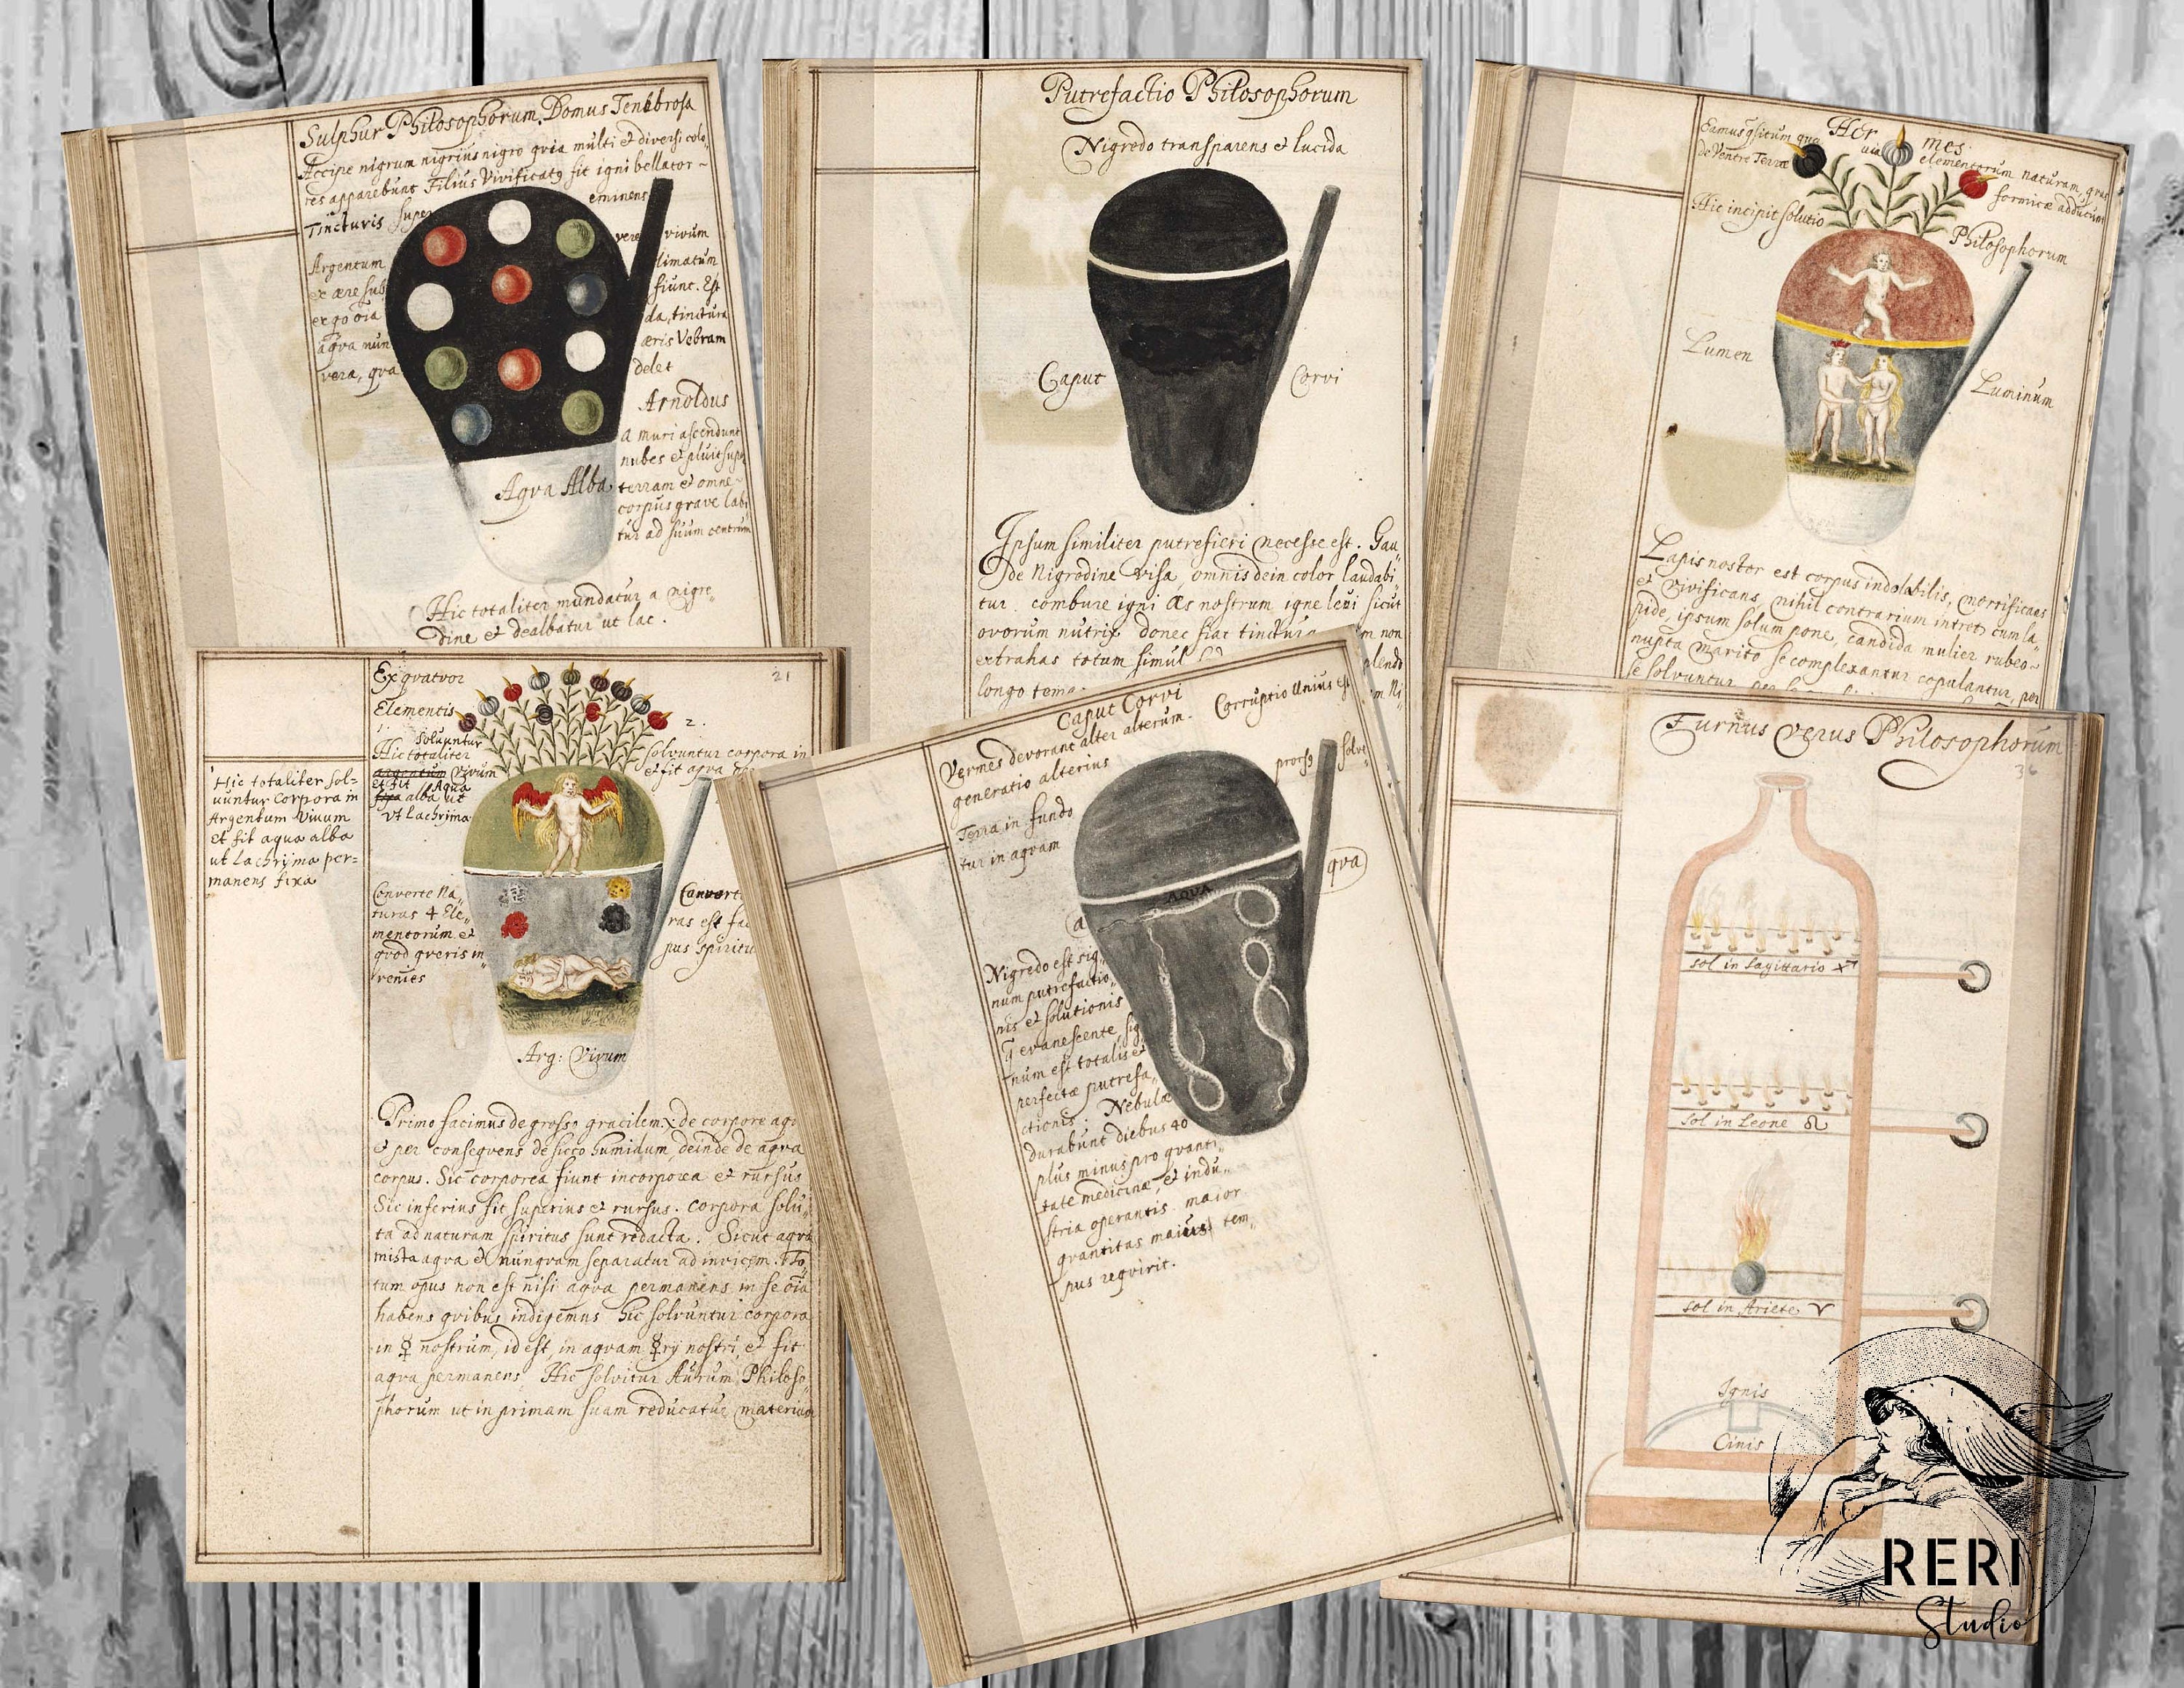 Sulphur Philosophorum. Domus Tenebrosa
Accipe nigrum nigrius nigro qvia multi et diversi colo„
res apparebunt Filius Vivificatq fit igni bellator
Tincturis super eminens
vere vivum
Argentum limatum
ex ære sub fiunt. Est
ergo oia da, tinctura
aqva nun æris Vebram
vera, qva delet
Arnoldus
a muri ascendunt
nubes et pluit sup
terram et omne
corpus grave labi
tur ad suum centrum
Aqva Alba
Hic totaliter mundatur a nigre„
dine et dealbatur ut lac.
Putrefactio Philosophorum
Nigredo transparens et lucida
Caput Corvi
Ipsum similiter putrefieri necesse est. Gau„
de Nigrodine visa, omnis dein color laudabi„
tur. combure igni Æs nostrum igne levi sicut
ovorum nutrix donec fiat tinctura m non
extrahas totum simul plendo
longo tem m Ni
Hor mes
Eamus qsitum qua via elementorum naturam, qva
de Ventre Terræ formicæ adducunt
Hic incipit solutio Philosophorum
Lumen Luminum
Lapis noster est corpus indelebilis, mortificans
et vivificans, nihil contrarium intret cum la„
pide, ipsum solum pone, candida mulier rubeo
nupta marito se complexantur copulantur, per
se solvuntur
Ex qvatvor
Elementis
21
1.
2.
solvuntur
Hic totaliter
argentum vivum
et fit Aqua
fixa alba ut
vt Lachrima
Solvuntur corpora in
et fit aqva
Hic totaliter sol=
vuntur Corpora in
Argentum Vivum
et fit aqua alba
ut Lachryma per=
manens fixa
Converte Na„
turas 4 Ele„
mentorum et
qvod qveris in„
venies
Convert
ras est fac
pus spiritu
Arg: Vivum
Primo facimus de grosso gracilem x de corpore aqv
et per conseqvens de sicco humidum, deinde de aqva
corpus. Sic corporea fiunt incorporea et rursus
Sic inferius fit superius et rursus. corpora solu„
ta ad naturam spiritus sunt redacta. Sicut aqva
mista aqva et nunqvam separatur ad invicem. To„
tum opus non est nisi aqva permanens in se oia
habens qvibus indigemus hic solvuntur corpora
in ☿ nostrum, id est, in aqvam ☿rij nostri, et fit
aqva permanens Hic solvitur Aurum Philoso„
phorum ut in primam suam reducatur materiam
Caput Corvi
Vermes devorant alter alterum. Corruptio Unius est
generatio alterius
Terra in fundo prorsq solvi
tur in aqvam
qva
AQVA
Nigredo est sig„
num putrefactio„
nis et solutionis
q evanescente, sig„
num est totalis et
perfectæ putrefa„
ctionis: Nebulæ
durabunt diebus 40
plus minus pro qvanti„
tate medicinæ, et indu„
stria operantis. maior
qvantitas maius tem„
pus reqvirit.
Furnus verus Philosophorum
36
sol in Sagittario ♐
sol in Leone ♌
sol in Ariete ♈
Ignis
Cinis
RERI
Studio